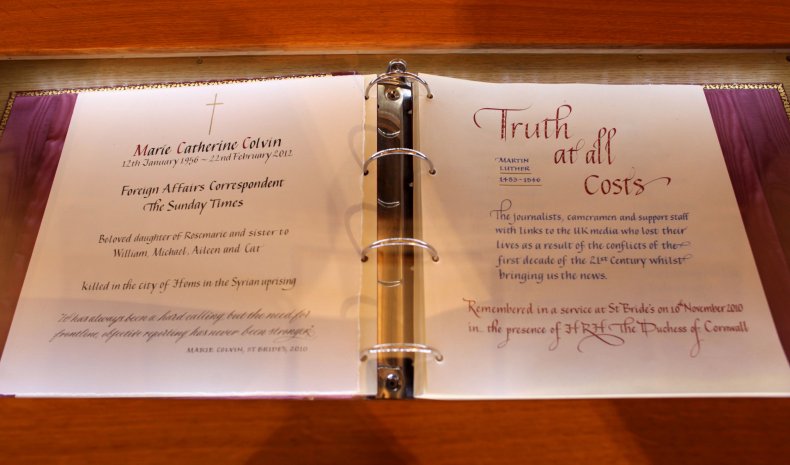 Marie Catherine Colvin
12th January 1956 ~ 22nd February 2012
Foreign Affairs Correspondent
The Sunday Times
Beloved daughter of Rosemarie and sister to
William, Michael, Aileen and Cat
Killed in the city of Homs in the Syrian uprising
'It has always been a hard calling but the need for
frontline, objective reporting has never been stronger'
MARIE COLVIN, ST BRIDE'S, 2010
Truth
at all
Costs
MARTIN
LUTHER
1483-1546
The journalists, cameramen and support staff
with links to the UK media who lost their
lives as a result of the conflicts of the
first decade of the 21st Century whilst
bringing us the news.
Remembered in a service at St Bride's on 10th November 2010
in the presence of HRH The Duchess of Cornwall